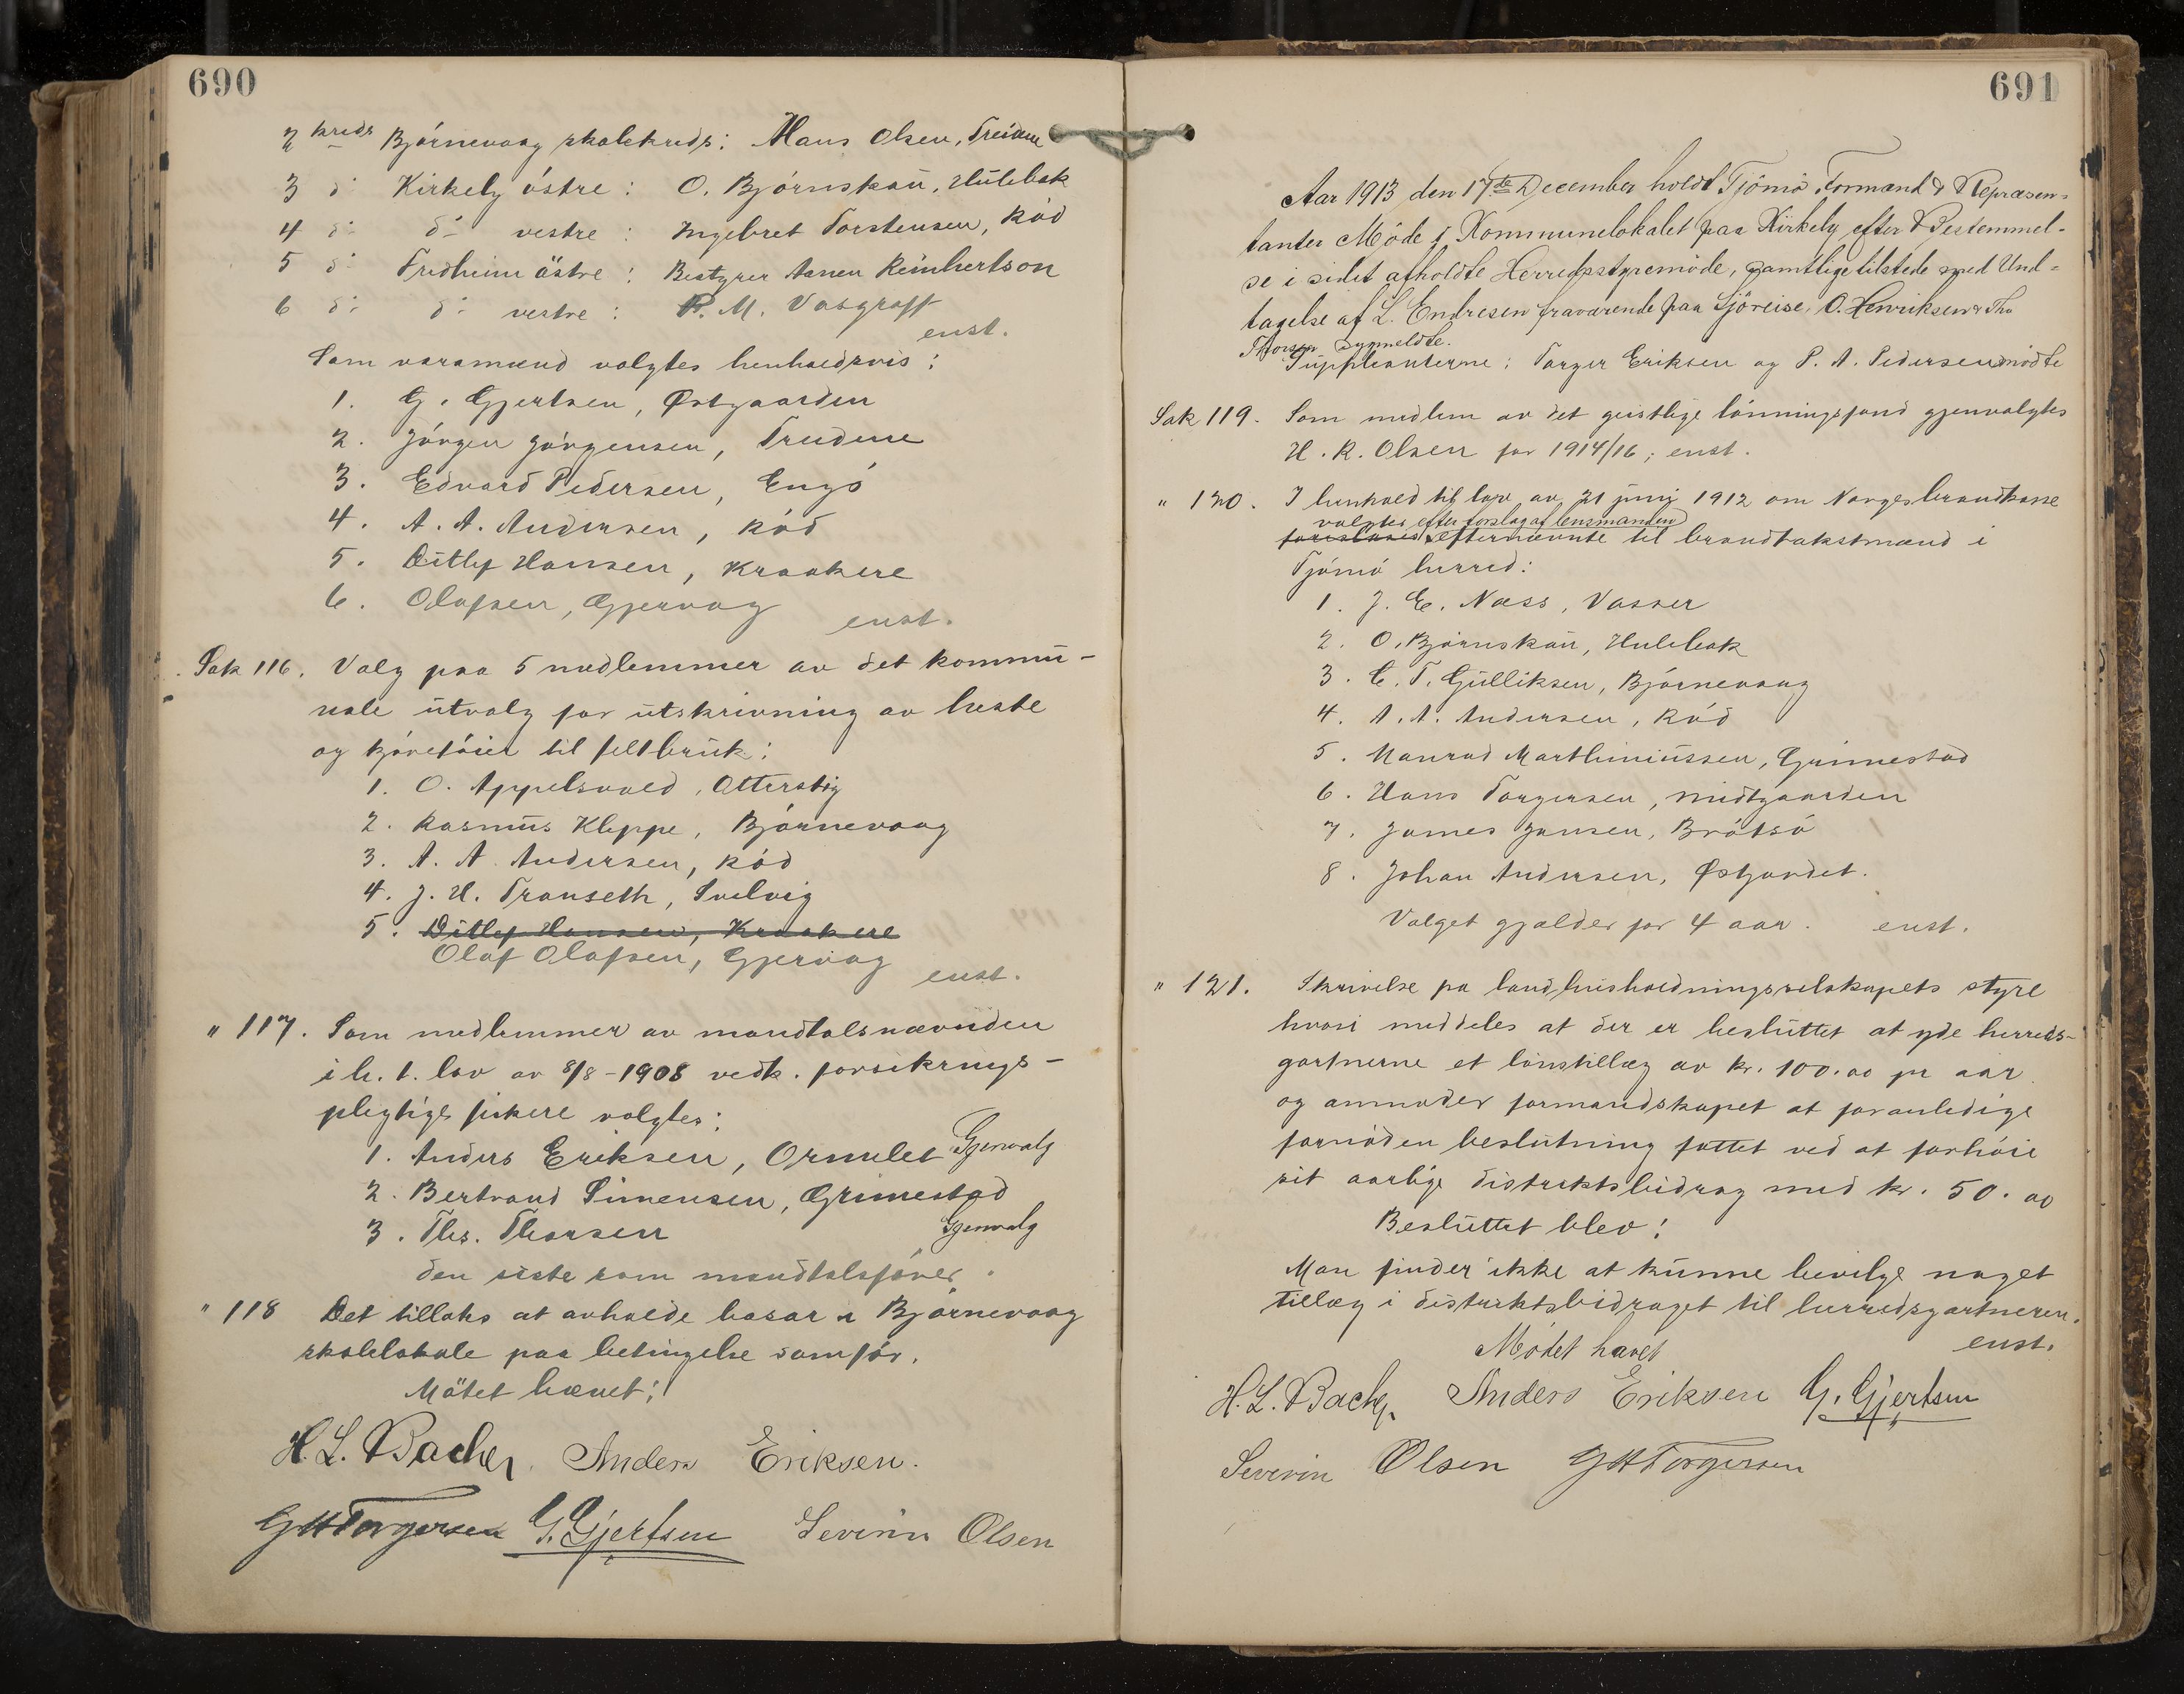 690
2 kreds Bjørnevaag skolekreds: Hans Olsen, Treidene
3 do Kirkeby østre: O. Bjørnskau, Hulebak
4 do do vestre: Ingebret Torstensen, Kød
5 do Fredheim østre: Bestyrer Reinhertson
6 do do vestre: M. Vasgraff
enst.
Som varamænd valgtes henholdsvis:
1. G. Gjertsen, Østgaarden
2. Jørgen Jørgensen, Treidene
3. Edvard Pedersen, Engø
4. A. A. Andersen, Kød
5. Ditlef Hansen, Kraakere
6. Olafsen, Gjervaag
enst.
Sak 116. Valg paa 5 medlemmer av det kommu-
nale utvalg for utskrivning av heste
og kjøretøier til feltbruk:
1. O. Appelsvold, Otterstig
2. Rasmus Kleppe, Bjørnevaag
3. A. A. Andersen, Kød
4. J. H. Transeth, Svelvig
5. Ditlef Hansen, Kraakere
Olaf Olafsen, Gjervaag
enst.
" 117. Som medlemmer av mandtalsnævnden
i h. t. lov av 8/8-1908 vedk. forsikrings-
pligtige fiskere valgtes:
1. Anders Eriksen, Ormelet Gjenvalg
2. Bertrand Simensen, Grimestad
3. Ths. Thorsen Gjenvalg
den siste som mandtalsfører.
" 118 Det tillates at avholde basar i Bjørnevaag
skolelokale paa betingelse som før.
Møtet hævet:
H. L. Bache, Anders Eriksen.
G H Torgersen G. Gjertsen Severin Olsen
691
Aar 1913 den 17de December holdt Tjömö Formænd & Repræsen-
tanter Möde i Kommunelokalet paa Kirkeby efter Bestemmel-
se i sidst afholdte Herredsstyremöde, samtlige tilstede med Und-
tagelse af L. Endresen fraværende paa Sjöreise, O. Henriksen & Ths
Thorsen sygmeldte.
Suppleanterne: Torger Eriksen og P. A. Pedersen mødte
Sak 119. Som medlem av det geistlige lønningsfond gjenvalgtes
H. R. Olsen for 1914/16, enst.
" 120. I henhold til lov av 21 juni 1912 om Norges brandkasse
valgtes efter forslag af lensmanden
foreslaaes efternævnte til brandtakstmænd i
Tjømø herred:
1. J. E. Næss, Vasser
2. O. Bjørnskau, Hulebak
3. C. T. Gulliksen, Bjørnevaag
4. A. A. Andersen, Kød
5. Konrad Marthiniussen, Grimestad
6. Hans Torgersen, midtgaarden
7. James Jansen, Brøtsø
8. Johan Andersen, Østjordet.
Valget gjælder for 4 aar. enst.
" 121. Skrivelse fra landhusholdningsselskapets styre
hvori meddeles at der er besluttet at yde herreds-
gartnerne et lønstillæg av kr. 100.00 pr aar
og anmoder formandskapet at foranledige
fornøden beslutning fattet ved at forhøie
sit aarlige distriktsbidrag med kr. 50.00
Besluttet blev:
Man finder ikke at kunne bevilge noget
tillæg i distriktsbidraget til herredsgartneren.
enst.
Mødet hævet
H. L. Bache, Anders Eriksen G. Gjertsen
Severin Olsen G H Torgersen